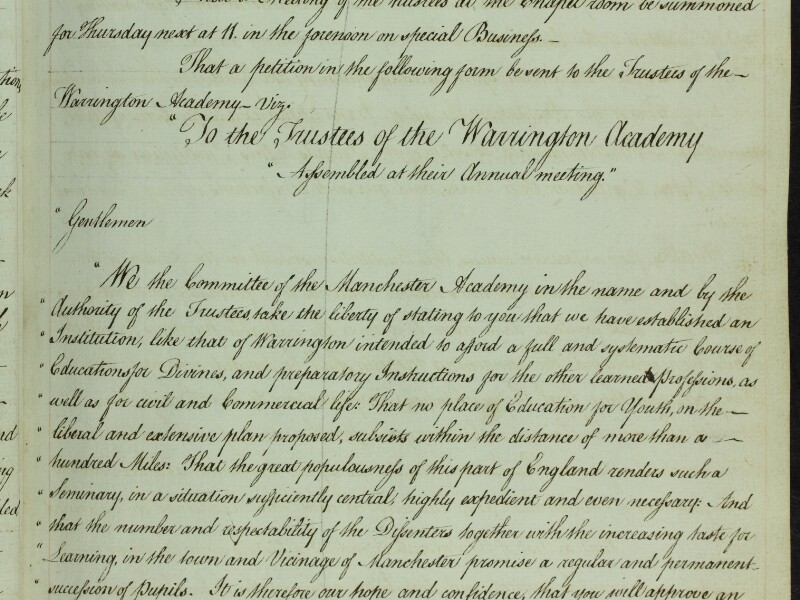 Meeting of the Trustees at the Chapel room be summoned
for Thursday next at 11. in the forenoon on special Business.—
That a petition in the following form be sent to the Trustees of the—
Warrington Academy— Viz.
"To the Trustees of the Warrington Academy
"Assembled at their Annual meeting."
"Gentlemen
"We the Committee of the Manchester Academy in the name and by the
"Authority of the Trustees, take the liberty of stating to you that we have established an
"Institution, like that of Warrington intended to afford a full and systematic Course of
"Education for Divines, and preparatory Instructions for the other learned professions, as
"well as for civil and Commercial life: That no place of Education for Youth, on the—
"liberal and extensive plan proposed, subsists within the distance of more than a—
"hundred Miles: That the great populousness of this part of England renders such a
"Seminary, in a situation sufficiently central, highly expedient and even necessary: And
"that the number and respectability of the Dissenters together with the increasing taste for
"Learning, in the town and Vicinage of Manchester promise a regular and permanent—
"succession of Pupils. It is therefore our hope and confidence, that you will approve an